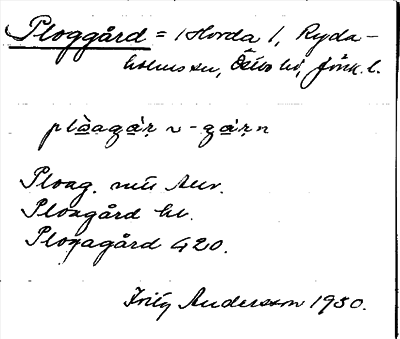 Ploggård = Horda 1, Ryda-
holms sn, Östbo hd, Jönk. l.
plàagár n - gárn
Ploag. nu
Ploagård hl.
Plogagård 420.
Fritz Andersson 1930.